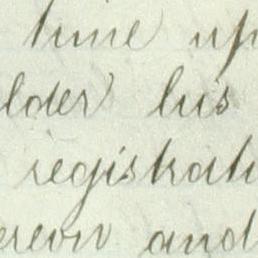 time up
older his
registrati
ereon and